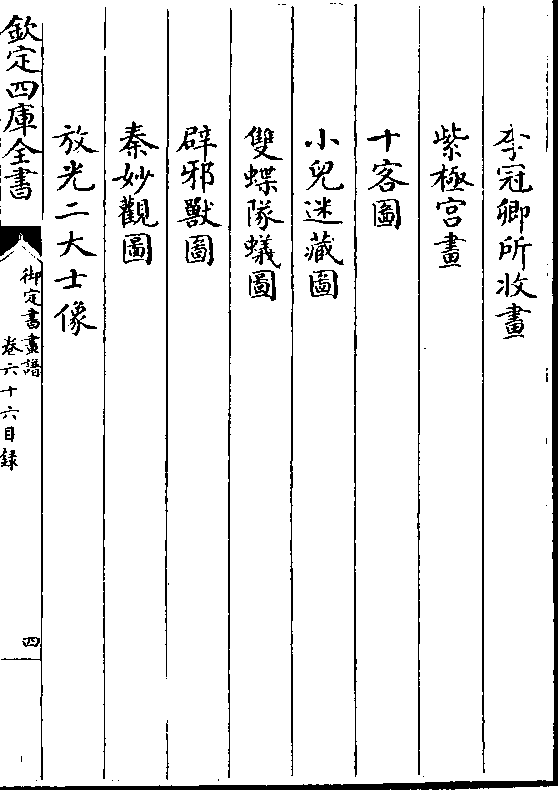 李冠卿所收畫
紫極宮畫
十客圖
小兒迷藏圖
雙蝶隊蟻圖
辟邪獸圖
秦妙觀圖
放光二大士像
欽定四庫全書
御定書畫譜
卷六十六目録
四